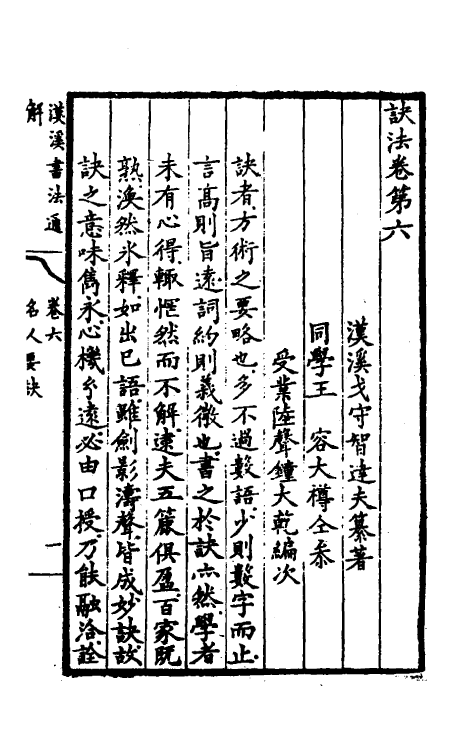 訣法卷第六
漢溪戈守智達夫纂著
同學王　容大樽仝叅
受業陸聲鐘大乾編次
訣者方術之要略也多不過數語少則數字而止
言高則旨遠詞約則義微也書之於訣亦然學者
未有心得輒惘然而不解逮夫五簏俱盈百家既
熟渙然氷釋如出已語雖劍影濤聲皆成妙訣故
訣之意味雋永心機兮遠必由口授乃能融洽詮
漢溪書法通解　卷六　名人要訣　一